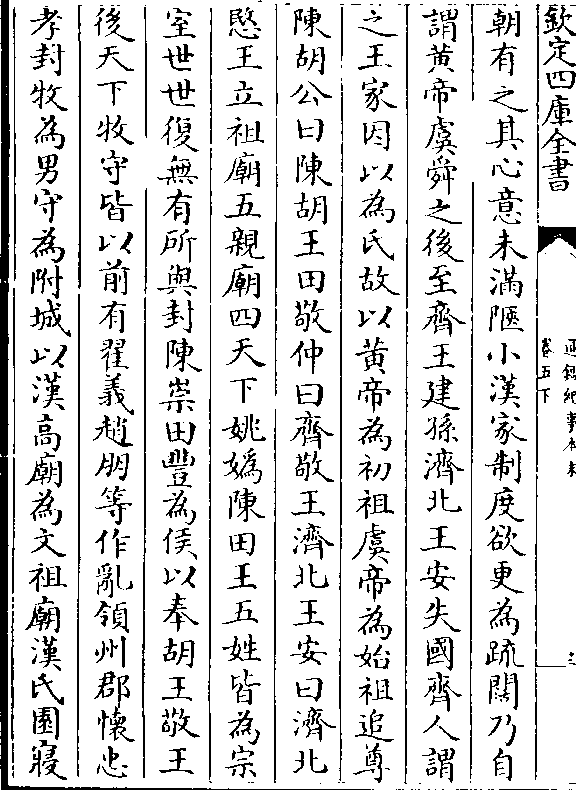 欽定四庫全書
通鑑紀事本末
卷五下
朝有之其心意未滿陿小漢家制度欲更為疏闊乃自
謂黃帝虞舜之後至齊王建孫濟北王安失國齊人謂
之王家因以為氏故以黃帝為初祖虞帝為始祖追尊
陳胡公曰陳胡王田敬仲曰齊敬王濟北王安曰濟北
愍王立祖廟五親廟四天下姚媯陳田王五姓皆為宗
室世世復無有所與封陳崇田豐為侯以奉胡王敬王
後天下牧守皆以前有翟義趙朋等作亂領州郡懷忠
孝封牧為男守為附城以漢高廟為文祖廟漢氏園寢